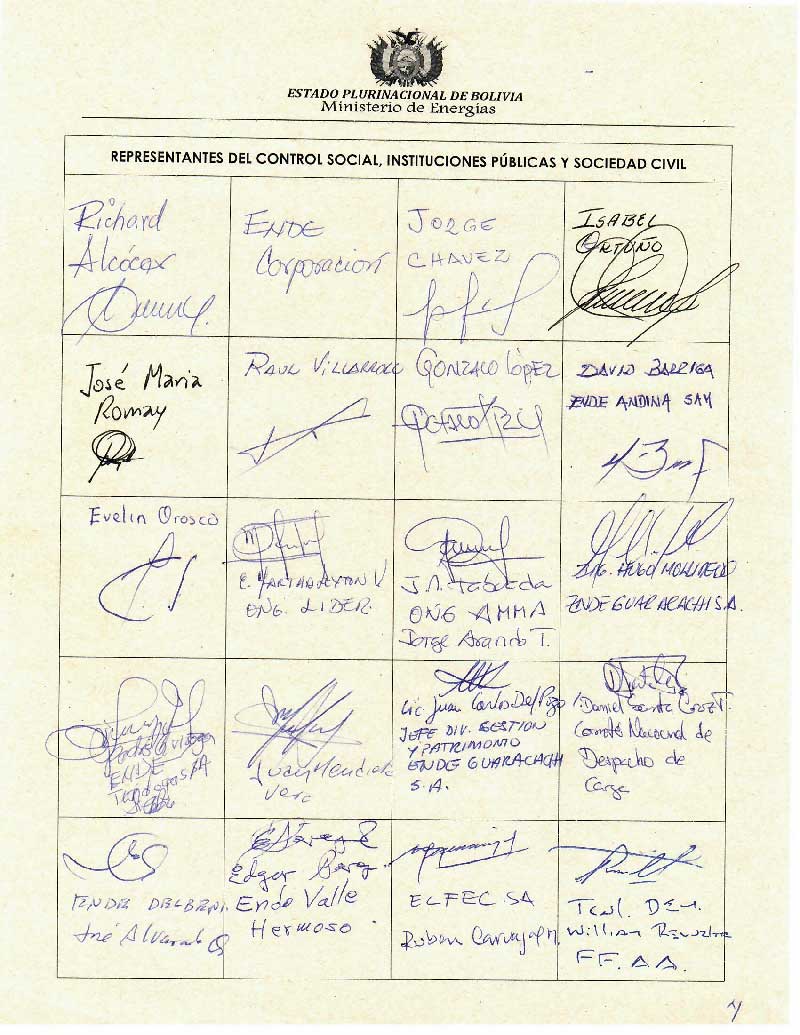 ESTADO PLURINACIONAL DE BOLIVIA
Ministerio de Energías
REPRESENTANTES DEL CONTROL SOCIAL, INSTITUCIONES PÚBLICAS Y SOCIEDAD CIVIL
Richard
Alcócer
ENDE
Corporación
JORGE
CHAVEZ
ISABEL
ORTUÑO
José Maria
Romay
RAUL VILLARROEL
GONZALO LÓPEZ
DAVID BARRIGA
ENDE ANDINA SAM
Evelin Orosco
ONG. LIDER.
J.N. Taboada
ONG AMMA
Jorge Arando T.
ING. HUGO
ENDE GUARACACHI S.A.
ENDE
Juan Mendieta
Vera
Lic Juan Carlos Del Pozo
JEFE DIV. GESTION
Y PATRIMONIO
ENDE GUARACACHI
S.A.
Daniel Santa Cruz T.
Comité Nacional de
Despacho de
Carga
ENDE DELBENI.
José Alvarado
Edgar
Ende Valle
Hermoso
ELFEC SA
Ruben Carvajal
Tcnl. DEM.
William
FF.AA.